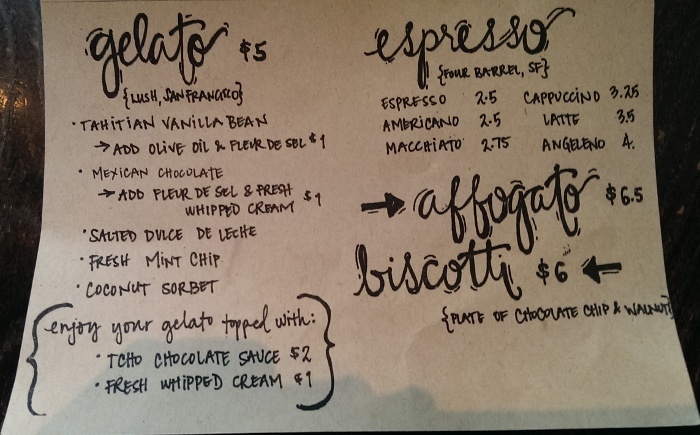 gelato $5
{LUSH, SAN FRANCISCO}
• TAHITIAN VANILLA BEAN
→ ADD OLIVE OIL & FLEUR DE SEL $1
• MEXICAN CHOCOLATE
→ ADD FLEUR DE SEL & FRESH $1
WHIPPED CREAM
• SALTED DULCE DE LECHE
• FRESH MINT CHIP
• COCONUT SORBET
{enjoy your gelato topped with:
• TCHO CHOCOLATE SAUCE $2
• FRESH WHIPPED CREAM $1}
espresso
{FOUR BARREL, SF}
ESPRESSO 2.5 CAPPUCCINO 3.25
AMERICANO 2.5 LATTE 3.5
MACCHIATO 2.75 ANGELENO 4.
→ affogato $6.5
biscotti $6 ←
{PLATE OF CHOCOLATE CHIP & WALNUT}